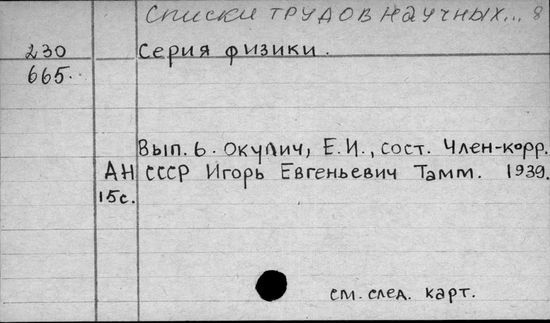 Списки трудов научных... 8
230 Серия физики.
665.
Вып. 6. Окулич, Е.И., сост. Член-корр.
АН СССР Игорь Евгеньевич Тамм. 1939.
15с.
см. след. карт.